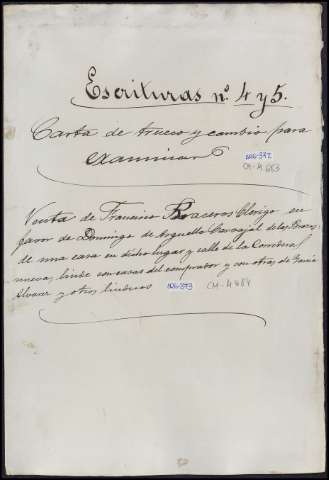 Escrituras nº. 4 y 5.
Carta de trueco y cambio para
examinar
N16-372
CM-4683
Venta de Francisco Braceros Clerigo en
favor de Domingo de Arguello Carvajal de las
de una casa en dicho lugar y calle de la Corredera
nueva, linde con casas del comprador y con otras de
Alvarez y otros linderos N16-373 CM-4684